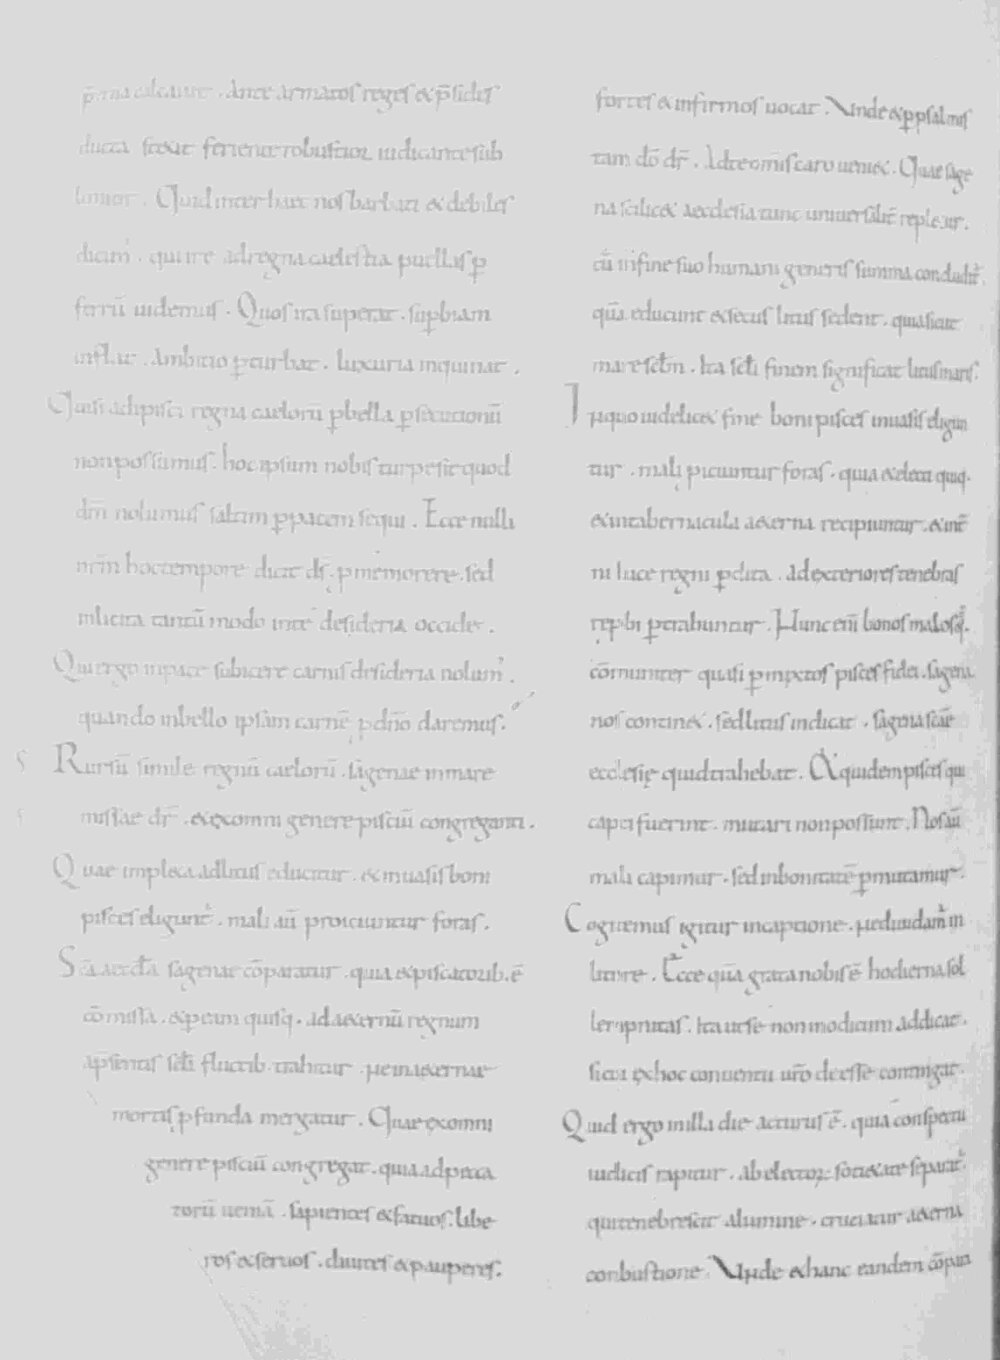 pęna calcauit . Ante armatos reges & p̄sides
ducta stetit feriente robustior iudicante sub
limior . Quid inter haec nos barbari & debiles
dicim̉ . qui ire ad regna caelestia puellas p̲
ferrū uidemus . Quos ira superat . sup̲bia
inflat . Ambitio p̲turbat . luxuria inquinat .
Qui si adipisci regna caelorū p̲ bella p̲secutionū
non possumus . hoc ipsum nobis turpe sit quod
dm̄ nolumus saltim p̲ pacem sequi . Ecce nulli
nr̄m hoc tempore dicit ds̄ . p me morere . sed
inlicita tantū modo in te desideria occide .
Qui ergo in pace subicere carnis desideria nolum̉ .
quando in bello ipsam carnē p dn̄o daremus .
Rursū simile regnū caelorū . sagenae in mare
missae dr̄ . & ex omni genere pisciū congreganti .
Quae impleta ad litus educitur . & in uasis boni
pisces eligunt̉ . mali aū proiciuntur foras .
Sc̄a aeccl̄a sagenae cōparatur . quia & piscatorib. ē
cōmissa . & p̲ eam quisq. ad aeternū regnum
a p̄sentis scl̄i fluctib. trahitur . ne in aeternae
mortis p̲funda mergatur . Quae ex omni
genere pisciū congregat . quia ad pecca
torū ueniā . sapientes & fatuos . libe
ros & seruos . diuites & pauperes .
fortes & infirmos uocat . Unde & p̲ psalmis
tam dō dr̄ . Ad te omīs caro ueniet . Quae sage
na scilicet aecclesia tunc uniuersalit̄ repletur .
cū in fine suo humani generis summa concludit̉ .
quā educunt & secus litus sedent . quia sicut
mare scl̄m . Ita scl̄i finem significat litus maris .
In quo uidelicet fine boni pisces in uasis eligun
tur . mali p̲iciuntur foras . quia & electi quiq.
& in tabernacula aeterna recipiuntur . & int̄
ni luce regni p̲dita . ad exteriores tenebras
rep̲bi p̲trahuntur . Nunc eni bonos malosq̉ .
cōmuniter quasi p̲mixtos pisces fidei . sagena
nos continet . sed litus indicat . sagena scae
ecclesię quid trahebat . Et quidem pisces qui
capti fuerint . mutari non possunt . Nos aū
mali capimur . sed in bonitatē p̲mutamur .
Cogitemus igitur in captione . ne diuidam̉ in
litore . Ecce quā grata nobis ē hodierna sol
lempnitas . Ita ut se non modicum addicat .
sicui ex hoc conuentu uro deesse contingat .
Quid ergo in illa die acturus ē . qui a conspectu
iudicis rapitur . ab elector. societate separat̉ .
qui tenebrescit a lumine . cruciatur aeterna
conbustione . Unde & hanc eandem cōpara